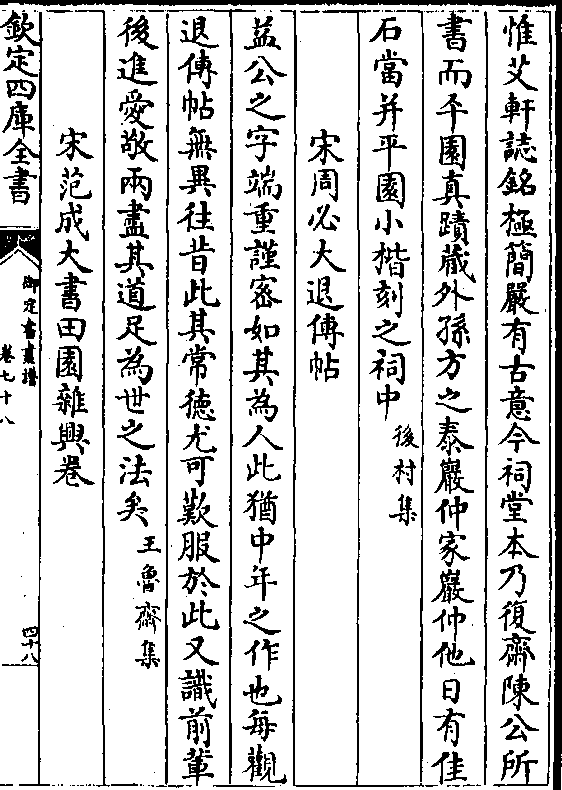 惟艾軒誌銘極簡嚴有古意今祠堂本乃復齋陳公所
書而平園真蹟藏外孫方之泰巖仲家巖仲他日有佳
石當并平園小楷刻之祠中後村集
宋周必大退傅帖
益公之字端重謹密如其為人此猶中年之作也每觀
退傅帖無異往昔此其常徳尤可歎服於此又識前輩
後進愛敬兩盡其道足為世之法矣王魯齋集
宋范成大書田園雜興卷
欽定四庫全書
御定書畫譜
卷七十八
四十八